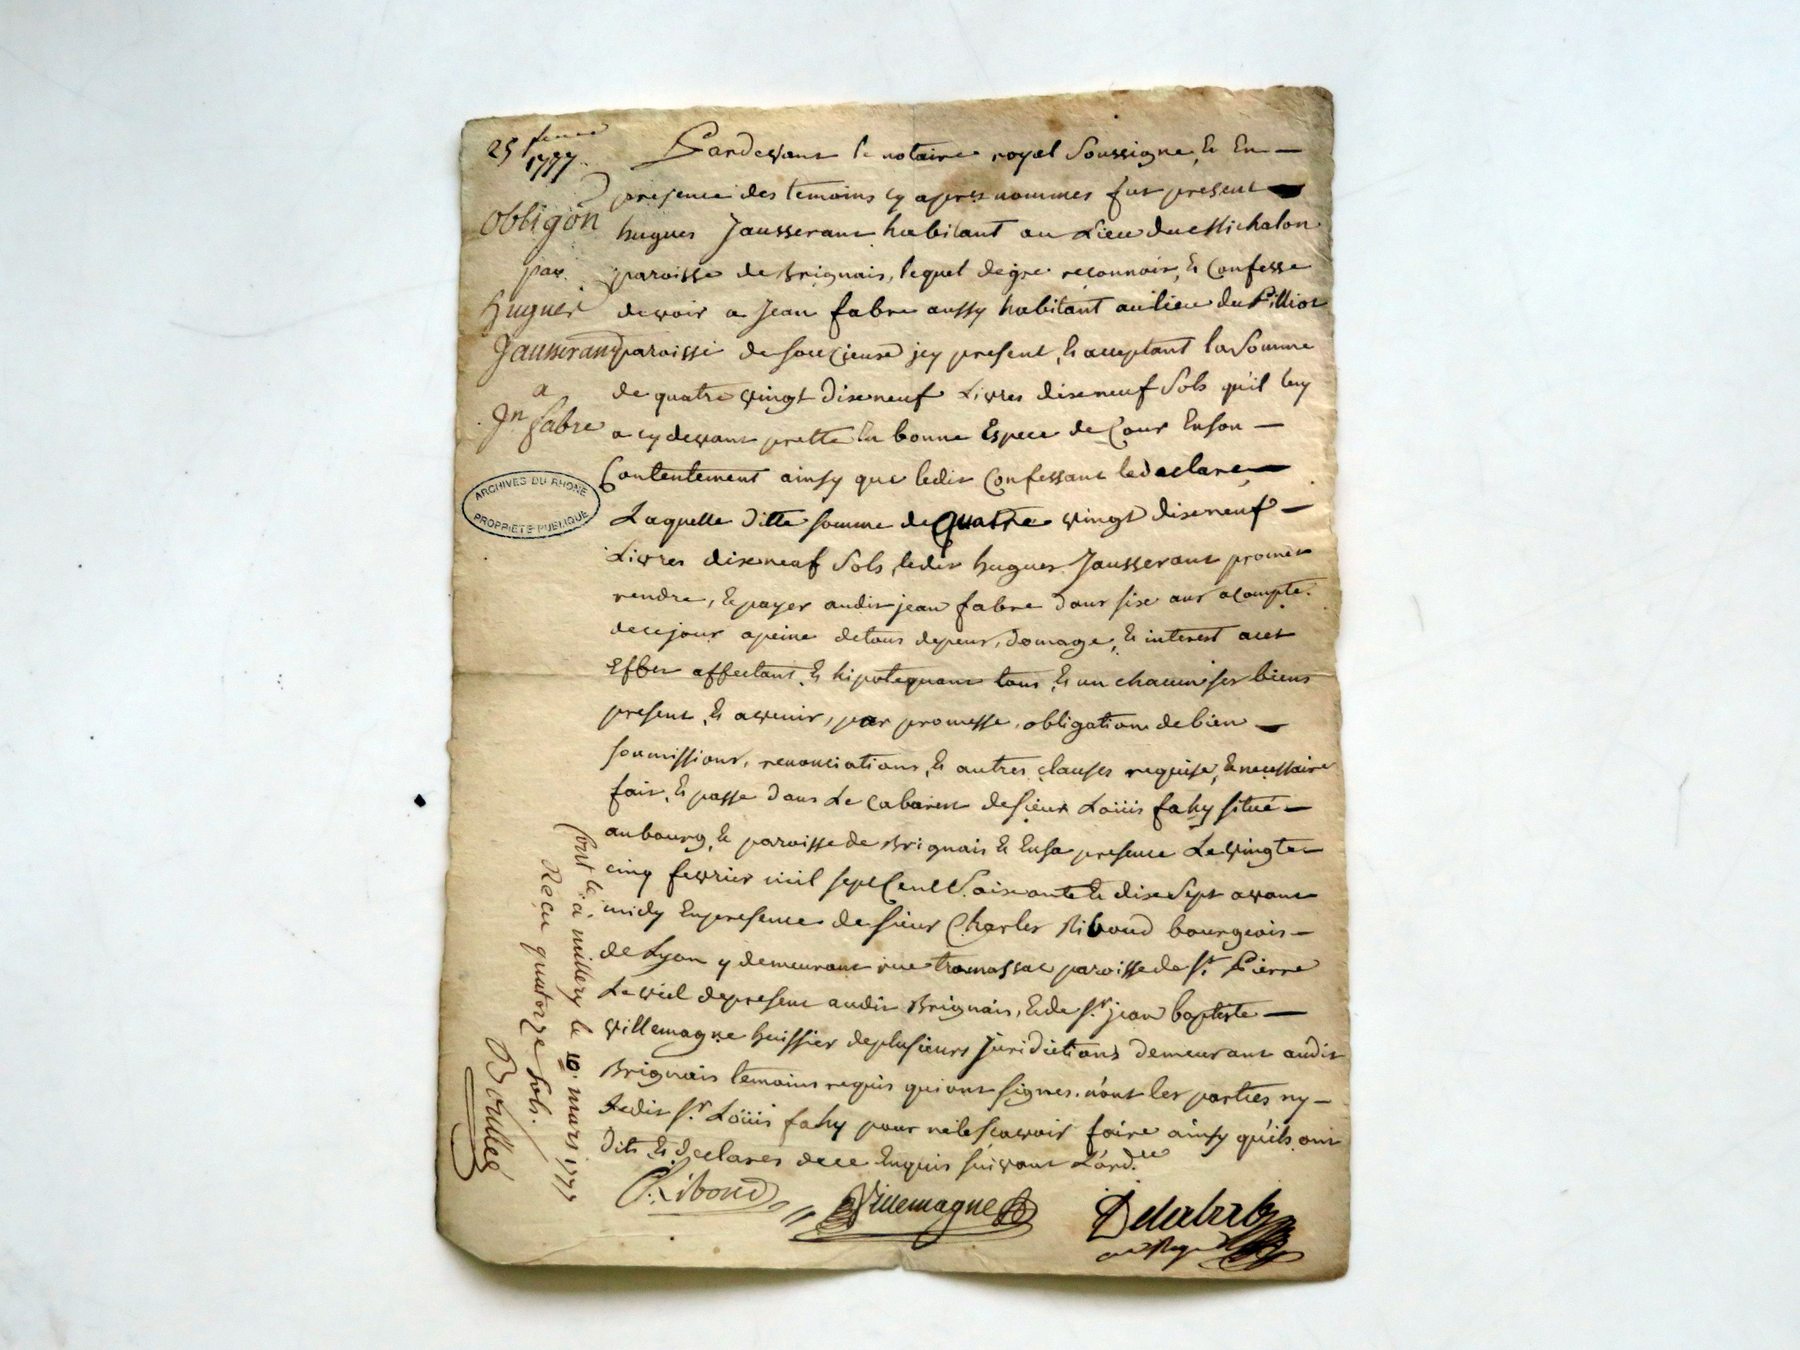 25 fevrier
1777
Obligon
par
Hugues
Jausserand
a
Jn fabre
ARCHIVES DU RHONE
PROPRIETE PUBLIQUE
Pardevant le notaire royal Soussigné, & En
presence des temoins cy apres nommes fut present
hugues Jausserant habitant au Lieu du Michalon
paroisse de Brignais, lequel de gre reconnoit, & Confesse
devoir a Jean fabre aussy habitant au lieu du Pilliot
paroisse de soucieuse jcy present, & acceptant la Somme
de quatre vingt dixeneuf Livres dixeneuf Sols qu'il luy
a cy devant prette En bonne Espece de Cour Enson
Contentement ainsy que ledit Confessant le declare
Laquelle ditte somme de Quatre vingt dixeneuf
Livres dixeneuf Sols, ledit hugues Jausserant promet
rendre, & payer audit jean fabre dans sixe ans a compte
de ce jour a peine de tous depens, domage, & interest a cet
Effet affectant, & hipotequant tous, & un chacun ses biens
present, & avenir, par promesse, obligation de bien
soumissions, renonciations, & autres clauses requise, & necessaire
fait, & passe dans Le Cabaret de sieur Loüis fahy situé
au bourg, & paroisse de Brignais & En sa presence Le vingte
cinq fevrier mil sept Cent Soixante & dixe Sept avant
midy En presence de sieur Charles Riboud bourgeois
de Lyon y demeurant rue tramassac paroisse de St. Pierre
Le vieil de present audit Brignais, & de Sr. jean baptiste
villemagne huissier de plusieurs Juridictions demeurant audit
Brignais temoins requis qui ont signes. n'ont les parties ny
Ledit Sr. Loüis fahy pour ne le sçavoir faire ainsy qu'ils ont
Dits & declares de ce Enquis suivant L'ord.ce
C. Riboud
Villemagne
Cont.lé a millery le 10. mars 1777
Recu quatorze sols.
Boullee